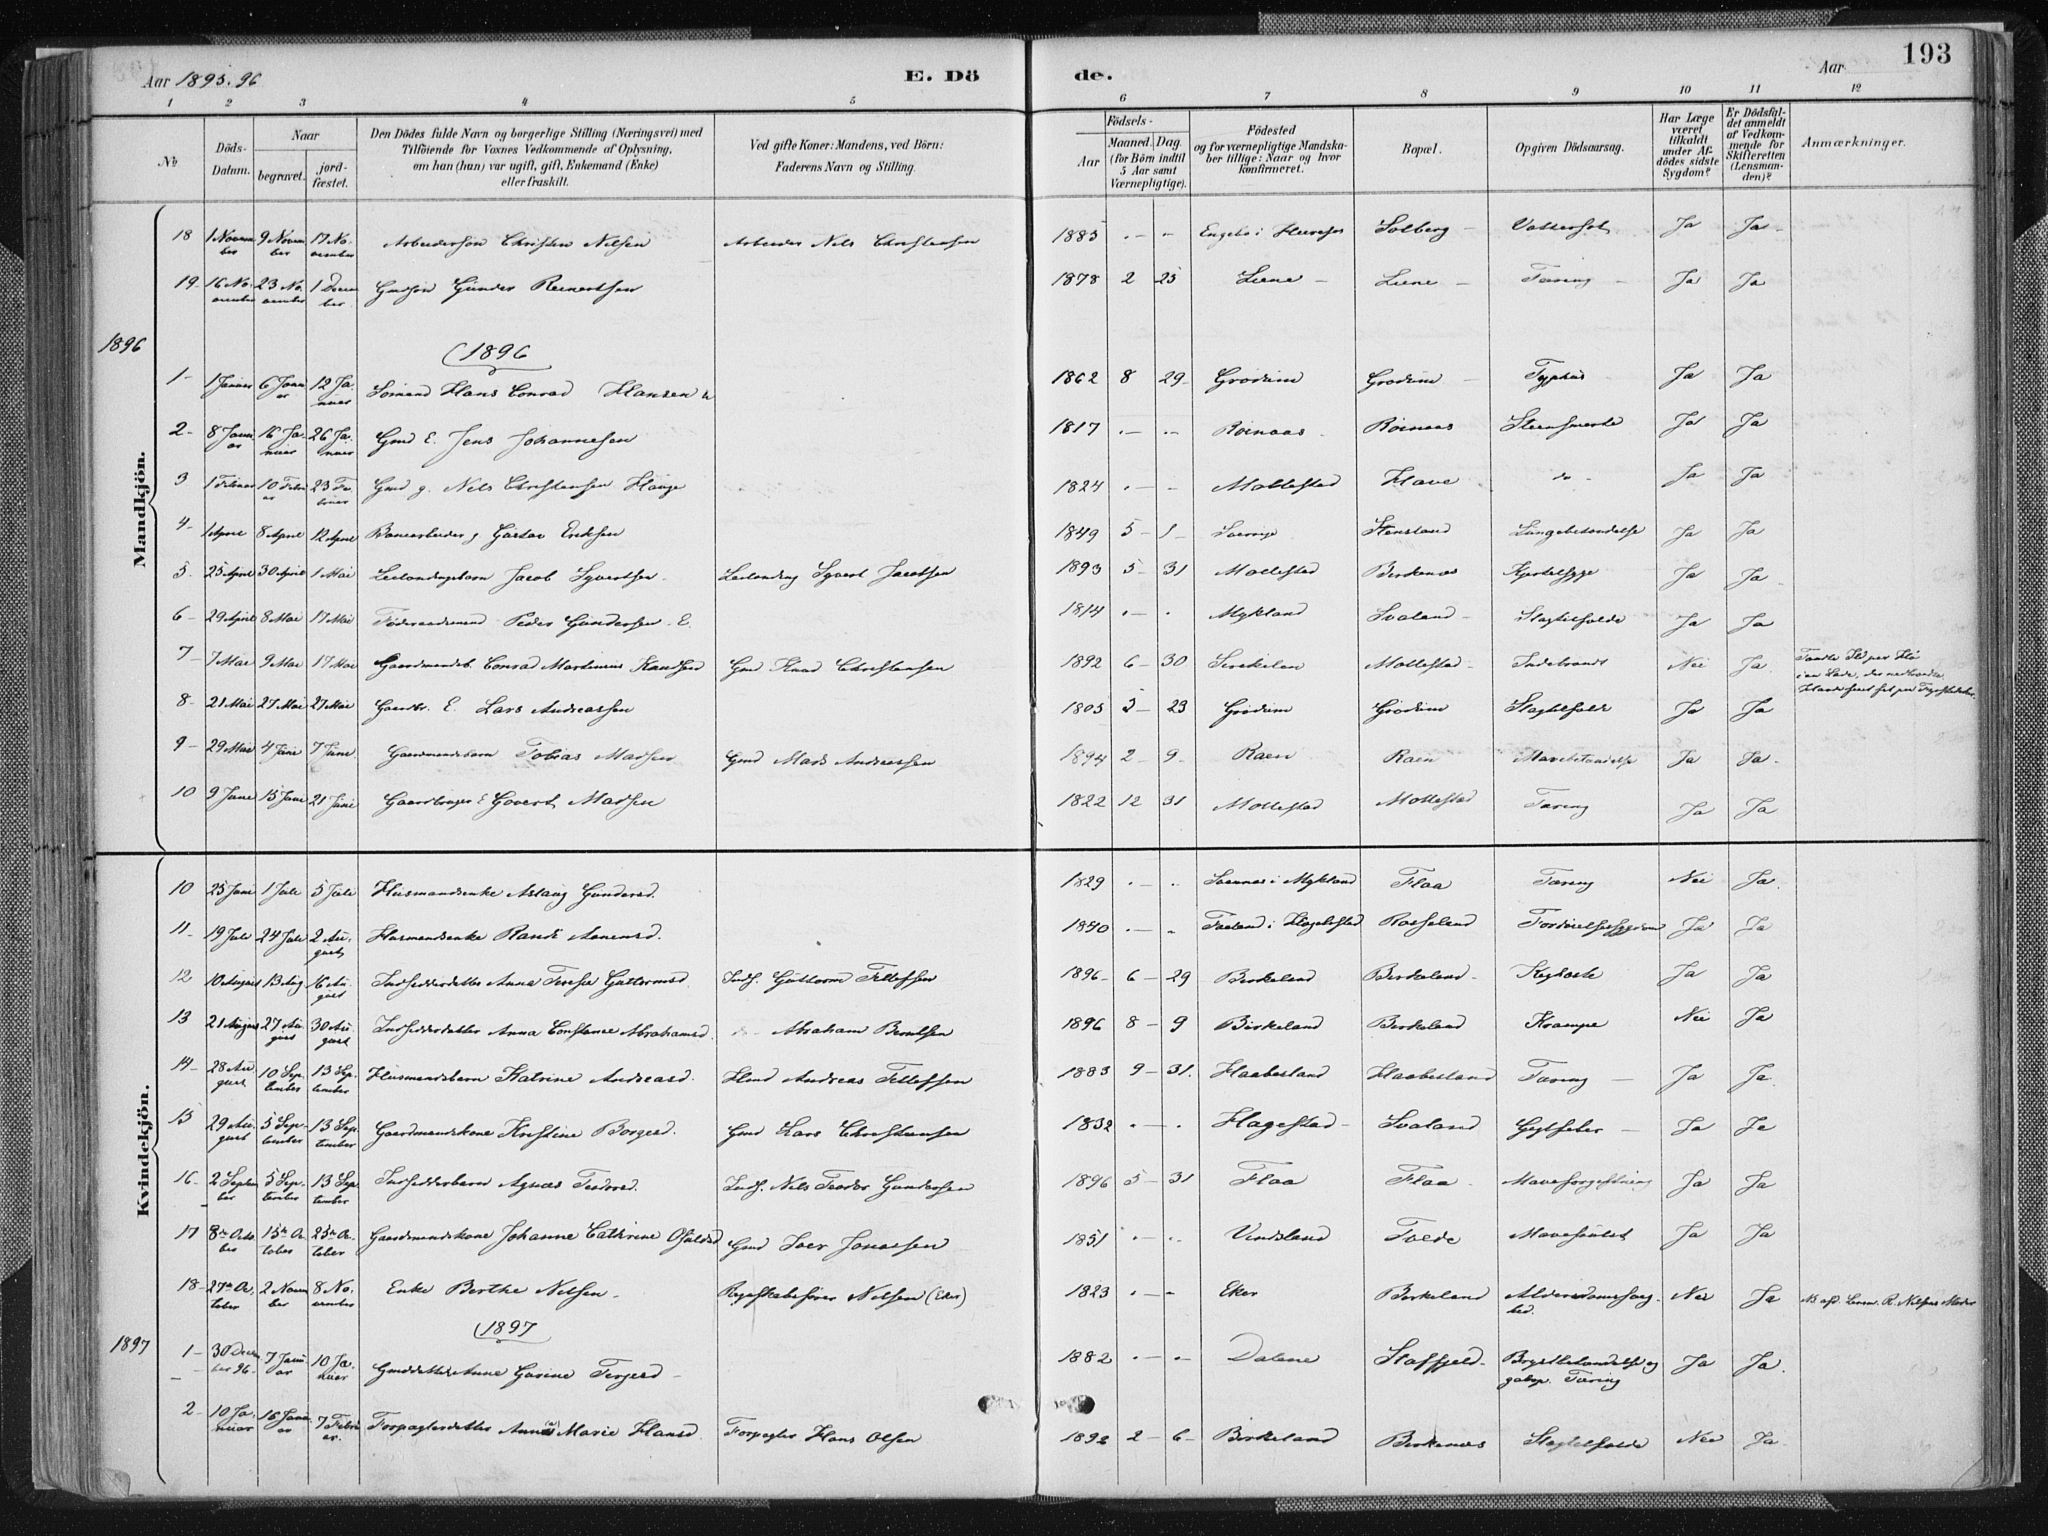 193
Aar 1895.96
E. Dö
de.
Aar
1 2 3 4 5 6 7 8 9 10 11 12
№
Döds-Datum.
Naar
begravet.
jordfæstet.
Den Dödes fulde Navn og borgerlige Stilling (Næringsvei) med Tilföiende for Voxnes Vedkommende af Oplysning, om han (hun) var ugift, gift, Enkemand (Enke) eller fraskilt.
Ved gifte Koner: Mandens, ved Börn: Faderens Navn og Stilling.
Aar
Födsels-
Maaned. Dag.
(for Börn indtil 5 Aar samt Værnepligtige).
Födested og for værnepligtige Mandskaber tillige: Naar og hvor konfirmeret.
Bopæl.
Opgiven Dödsaarsag.
Har Læge været tilkaldt under Afdödes sidste Sygdom?
Er Dödsfaldet anmeldt af Vedkommende for Skifteretten (Lensmanden)?
Anmærkninger.
Mandkjön.
18 1 November 9 November 17 November Arbeidersön Christen Nilsen Arbeider Nils Christensen 1885 - - Solberg Vattersot Ja Ja
19 16 November 23 November 1 December Gmdsön Gunder Reinertsen 1878 2 25 Liene Liene Tæring Ja Ja
1896
1896
1 1 Januar 6 Januar 12 Januar Sömand Hans Conrad Hansen 1862 8 29 Grödum Grödum Typhus Ja Ja
2 8 Januar 16 Januar 26 Januar Gmd E. Jens Johannesen 1817 - - Roinaas Roinaas Steensmerte Ja Ja
3 1 Februar 10 Februar 23 Februar Gmd g. Nils Christensen Hauge 1824 - - Mollestad Have do Ja Ja
4 1 April 8 April 12 April Banearbeider g Gustav Eriksen 1849 5 1 Sverrige Stensland Lungebetændelse Ja Ja
5 25 April 30 April 1 Mai Leilændingsbarn Jacob Syvertsen Leilænding Syvert Jacobsen 1893 5 31 Mollestad Birkenes Kjertelsyge Ja Ja
6 29 April 8 Mai 17 Mai Föderaadsmand Peder Gundersen E. 1814 - - Mykland Svaland Slagtilfælde Ja Ja
7 7 Mai 9 Mai 17 Mai Gaardmandsb. Conrad Martinius Knudsen Gmd Knud Christensen 1892 6 30 Mollestad Indebrændt Nei Ja
8 21 Mai 27 Mai 27 Mai Gaardbr. E. Lars Andreassen 1805 5 23 Grödum Grödum Slagtilfælde Ja Ja
9 29 Mai 4 Juni 7 Juni Gaardmandsbarn Tobias Madsen Gmd Mads Andreassen 1894 2 9 Raen Raen Mavebetændelse Ja Ja
10 9 Juni 15 Juni 21 Juni Gaardbruger E Govert Madsen 1822 12 31 Mollestad Mollestad Tæring Ja Ja
Kvindekjön.
10 25 Juni 1 Juli 5 Juli Husmandsenke Aslaug Gundersd. 1829 - - Mykland Flaa Tæring Nei Ja
11 19 Juli 24 Juli 2 August Husmandsenke Randi Aanensd. 1840 - - Rosseland Ja Ja
12 10 August 13 Aug 16 August Indsidderdatter Anna Terese Guttormsd. Inds. Guttorm Tellefsen 1896 6 29 Birkeland Birkeland Kighoste Ja Ja
13 21 August 27 August 30 August Indsidderdatter Anna Constance Abrahamsd. Abraham Berntsen 1896 8 9 Birkeland Birkeland Krampe Nei Ja
14 28 August 10 September 13 September Husmandsbarn Katrine Andreasd. Hmd Andreas Tellefsen 1883 9 31 Haabesland Haabesland Tæring Ja Ja
15 29 August 5 September 13 September Gaardmandskone Kristine Borgersd. Gmd Lars Christensen 1832 - - Hagestad Svaland Gigtfeber Ja Ja
16 2 September 5 September 13 September Indsidderbarn Agnes Teodorsd. Inds. Nils Teodor Gundersen 1896 5 31 Flaa Flaa Maveforgiftning Ja Ja
17 8de October 15de October 25de October Gaardmandskone Johanne Cathrine Osuldsd Gmd Iver Jonassen 1851 - - Vindsland Tvede Ja Ja
18 27de October 2 November 8 November Enke Berthe Nilsen Regnskabsförer Nilsen (Eker) 1823 - - Eker Birkeland Nei Ja
1897
1897
1 30 December 96 7 Januar 10 Januar Gmddatter Anne Gurine Tergesd 1882 - - Dalene Staffjeld Brystbetændelse og galop. Tæring Ja Ja
2 10 Januar 16 Januar 7 Februar Forpagterdatter Anna Marie Hansd. Forpagter Hans Olsen 1892 2 6 Birkeland Birkenes Slagtilfælde Nei Ja